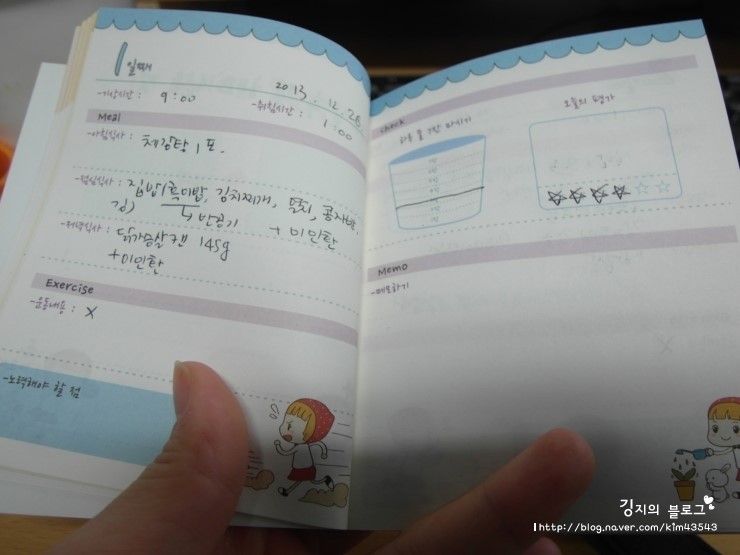 1일째
2013. 12. 28
-기상시간 : 9:00 -취침시간 : 1:00
Meal
-아침식사 : 체감탕 1포.
-점심식사 : 집밥(흑미밥, 김치찌개, 멸치, 콩자반,
김) ↳ 반공기 + 미인탄
-저녁식사 : 닭가슴살캔 145g
+미인탄
Exercise
-운동내용 : X
-노력해야 할 점
Check
하루 물 7잔 마시기
오늘의 평가
Memo
-메모하기
깅지의 블로그
http://blog.naver.com/kim43543